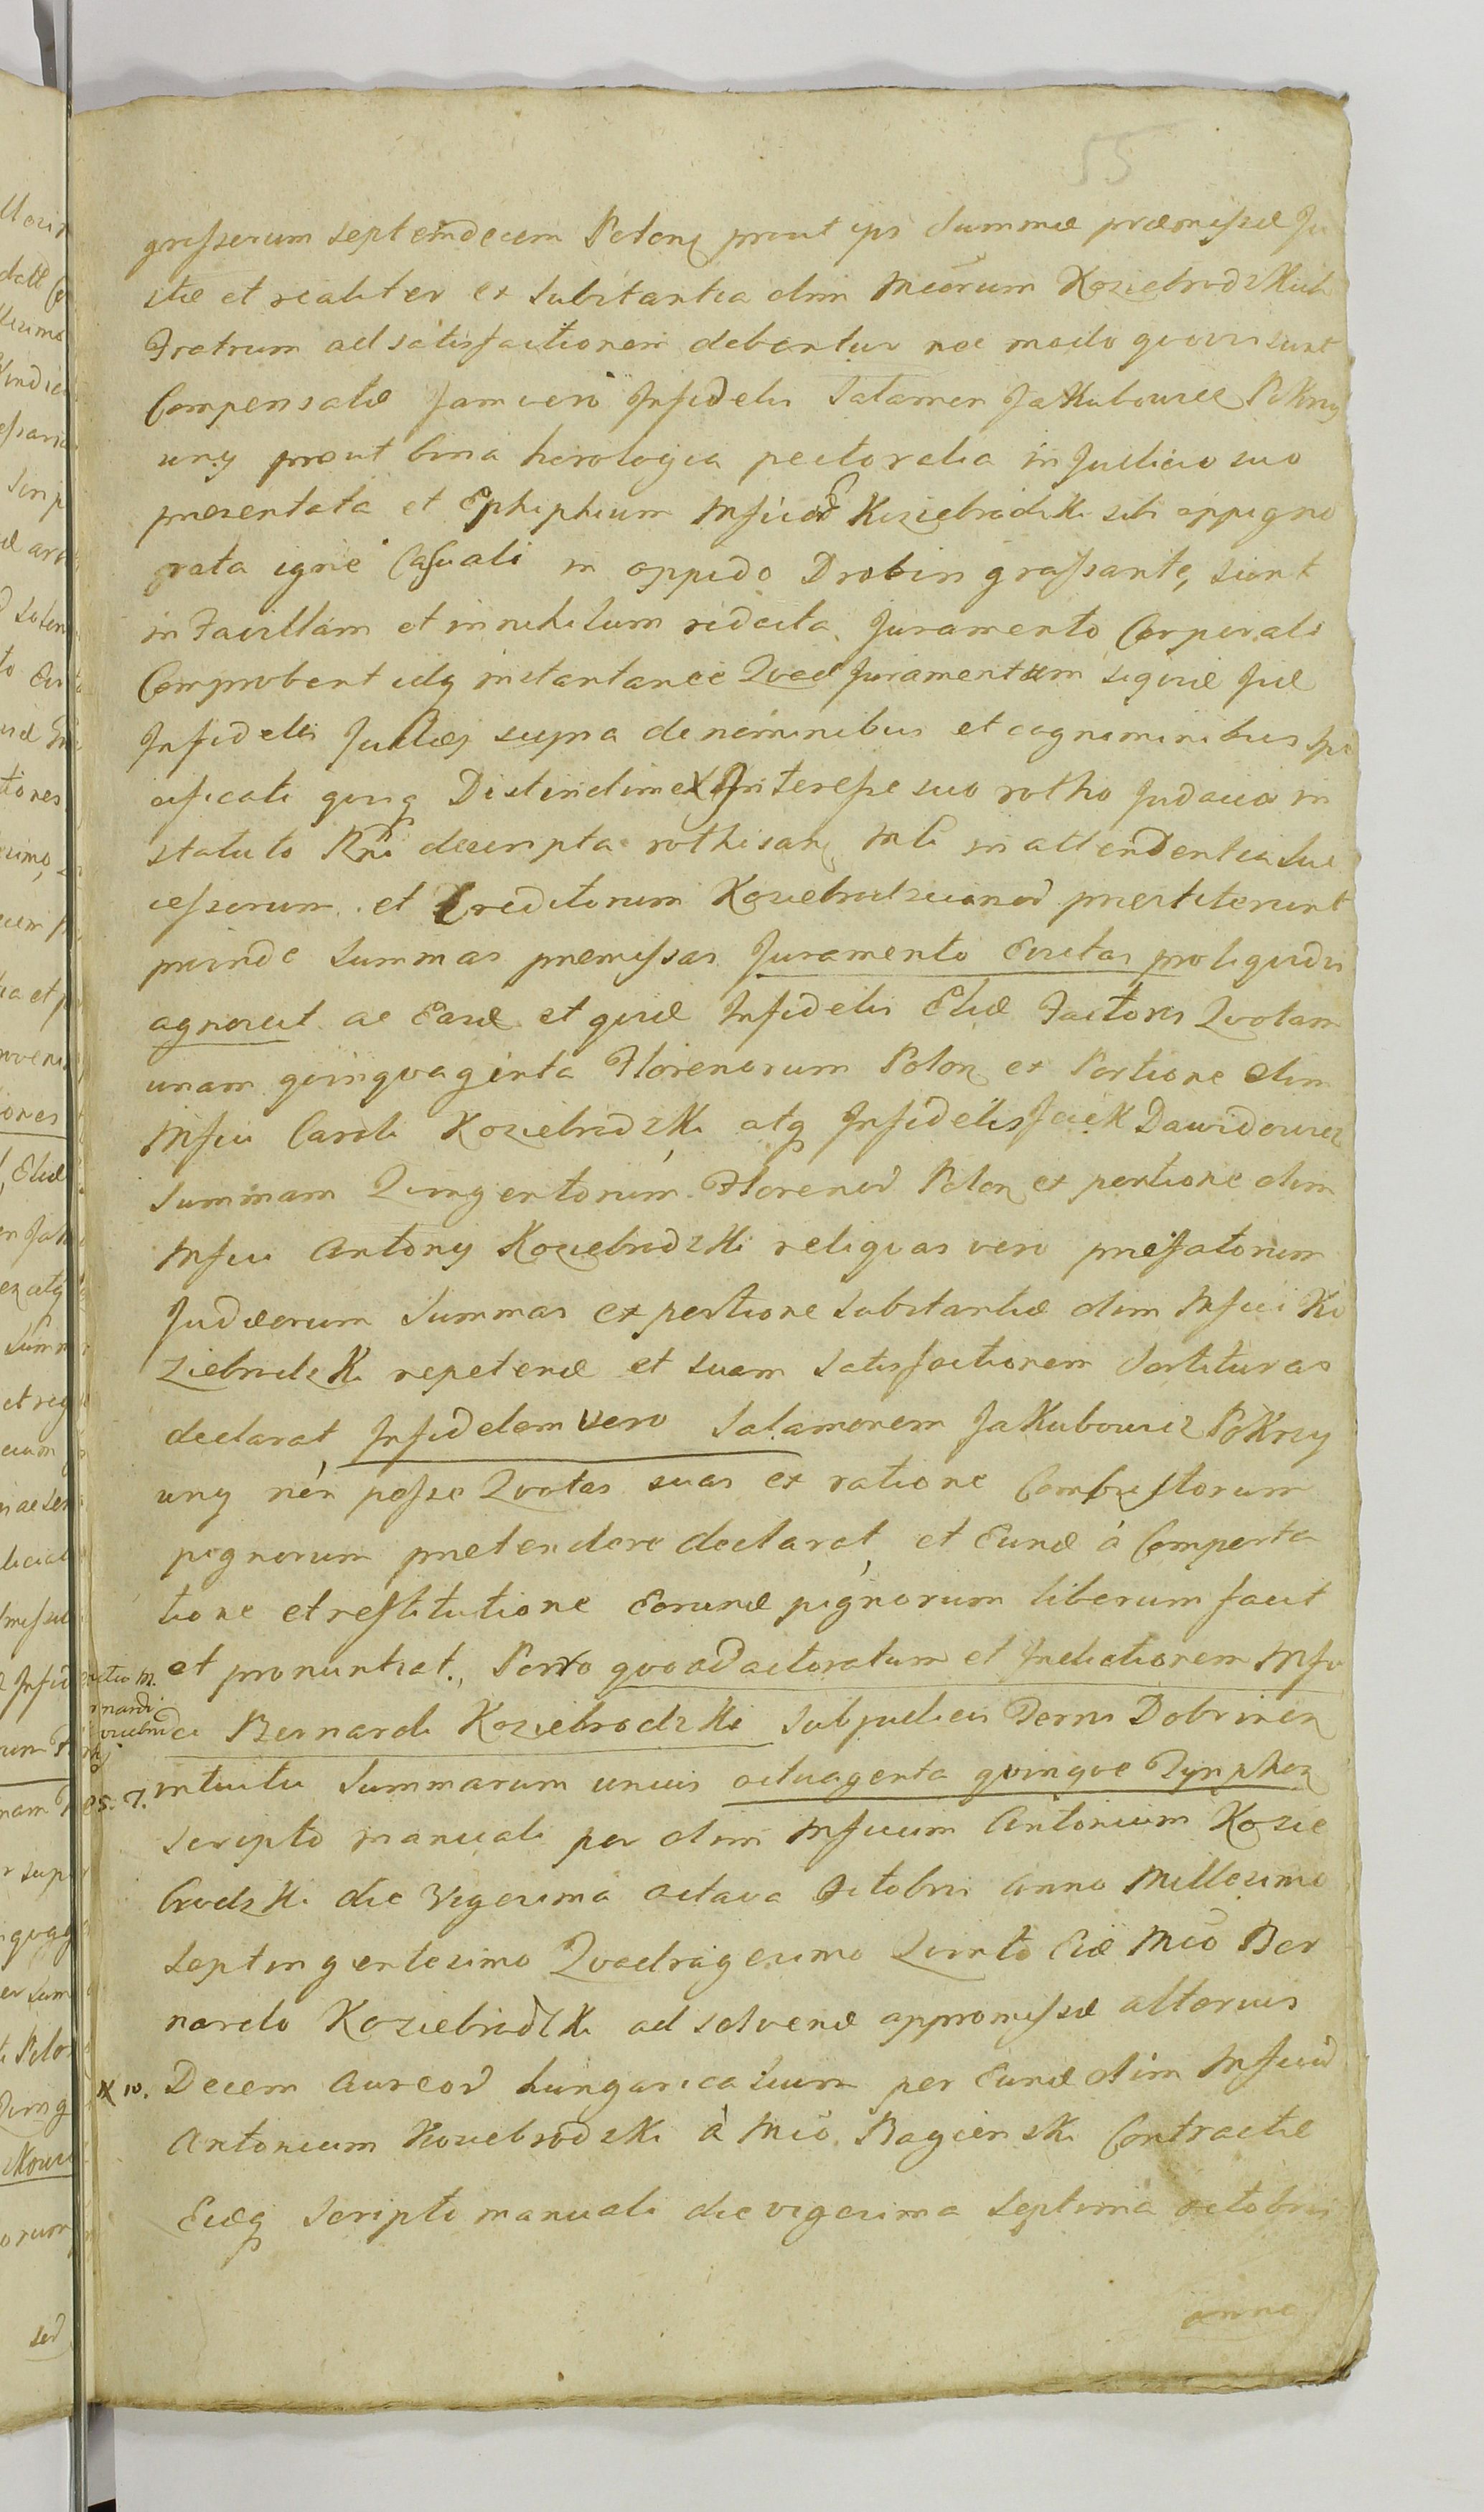 55
grosserum septemdecem Polon prout ipsi summæ præmissæ Ju
stæ et realiter ex substantia olim Mcorum Koziebrodzkich
Fratrum ad satisfactionem debentur nec modo quovis sunt
Compensatæ Jam vero Infidelis Salamon Jakubowicz Pokrzy
wny prout bina horologia pectoralia in Judicio suo
presentata et Ephiphium Mfico Koziebrodzki sibi oppigno
rata igne Casuali in oppido Drobin grassante, sunt
in Favillam et in nihilum redacta, Juramento Corporali
Comprobent idq instantanee Quod Juramentum siquid Jid
Infideles Judæi supra de nominibus et cognominibus spe
cificati quiq Distinctim ex Interesse suo rotho Judaico in
statuto Rni descripta rothisan Mli in attendentia Suc
cessorum et Creditorum Koziebrodscianod prestiterunt
proinde summas premissas Juramento Evictas pro liquidis
agnoscit ac Easd et quid Infidelis Eliæ Factoris Quotam
unam quinquaginta Florenorum Polon ex Portione olim
Mfici Caroli Koziebrodzki, atq Infidelis Jcick Dawidowicz
summam Quingentorum Florenod Polon ex portione olim
Mfici Antony Koziebrodzki reliquas vero prefatorum
Judæorum Summas ex portione substantiæ olim Mfici Ko
ziebrodzki repetend et suam satisfactionem sortituras
declarat, Infidelem vero Salamonem Jakubowicz Pokrzy
wny non posse Quotas suas ex ratione Combustorum
pignorum pretendere declarat, et Eund à Comporta
tione et restitutione Eorund pignorum liberum facit
et pronuntiat. Porro quoad actoratum et Inductionem Mfi
ci Bernardi Koziebrodzki Subjudicis Terræ Dobrinen
intuitu Summarum unius octuaginta quinque Tynphon
scripto manuali per olim Mficum Antonium Kozie
brodzki die Vigesima octava Octobris Anno Millesimo
Septingentesimo Quadragesimo Quinto Eid Mco Ber
nardo Koziebrodzki ad solvend appromissæ alterius
# 10. Decem Aureod hungaricalium per Eund olim Mficud
Antonium Koziebrodzki à Mco Bagienski Contractæ
Eidq scripto manuali die vigesima septima octobris
anno